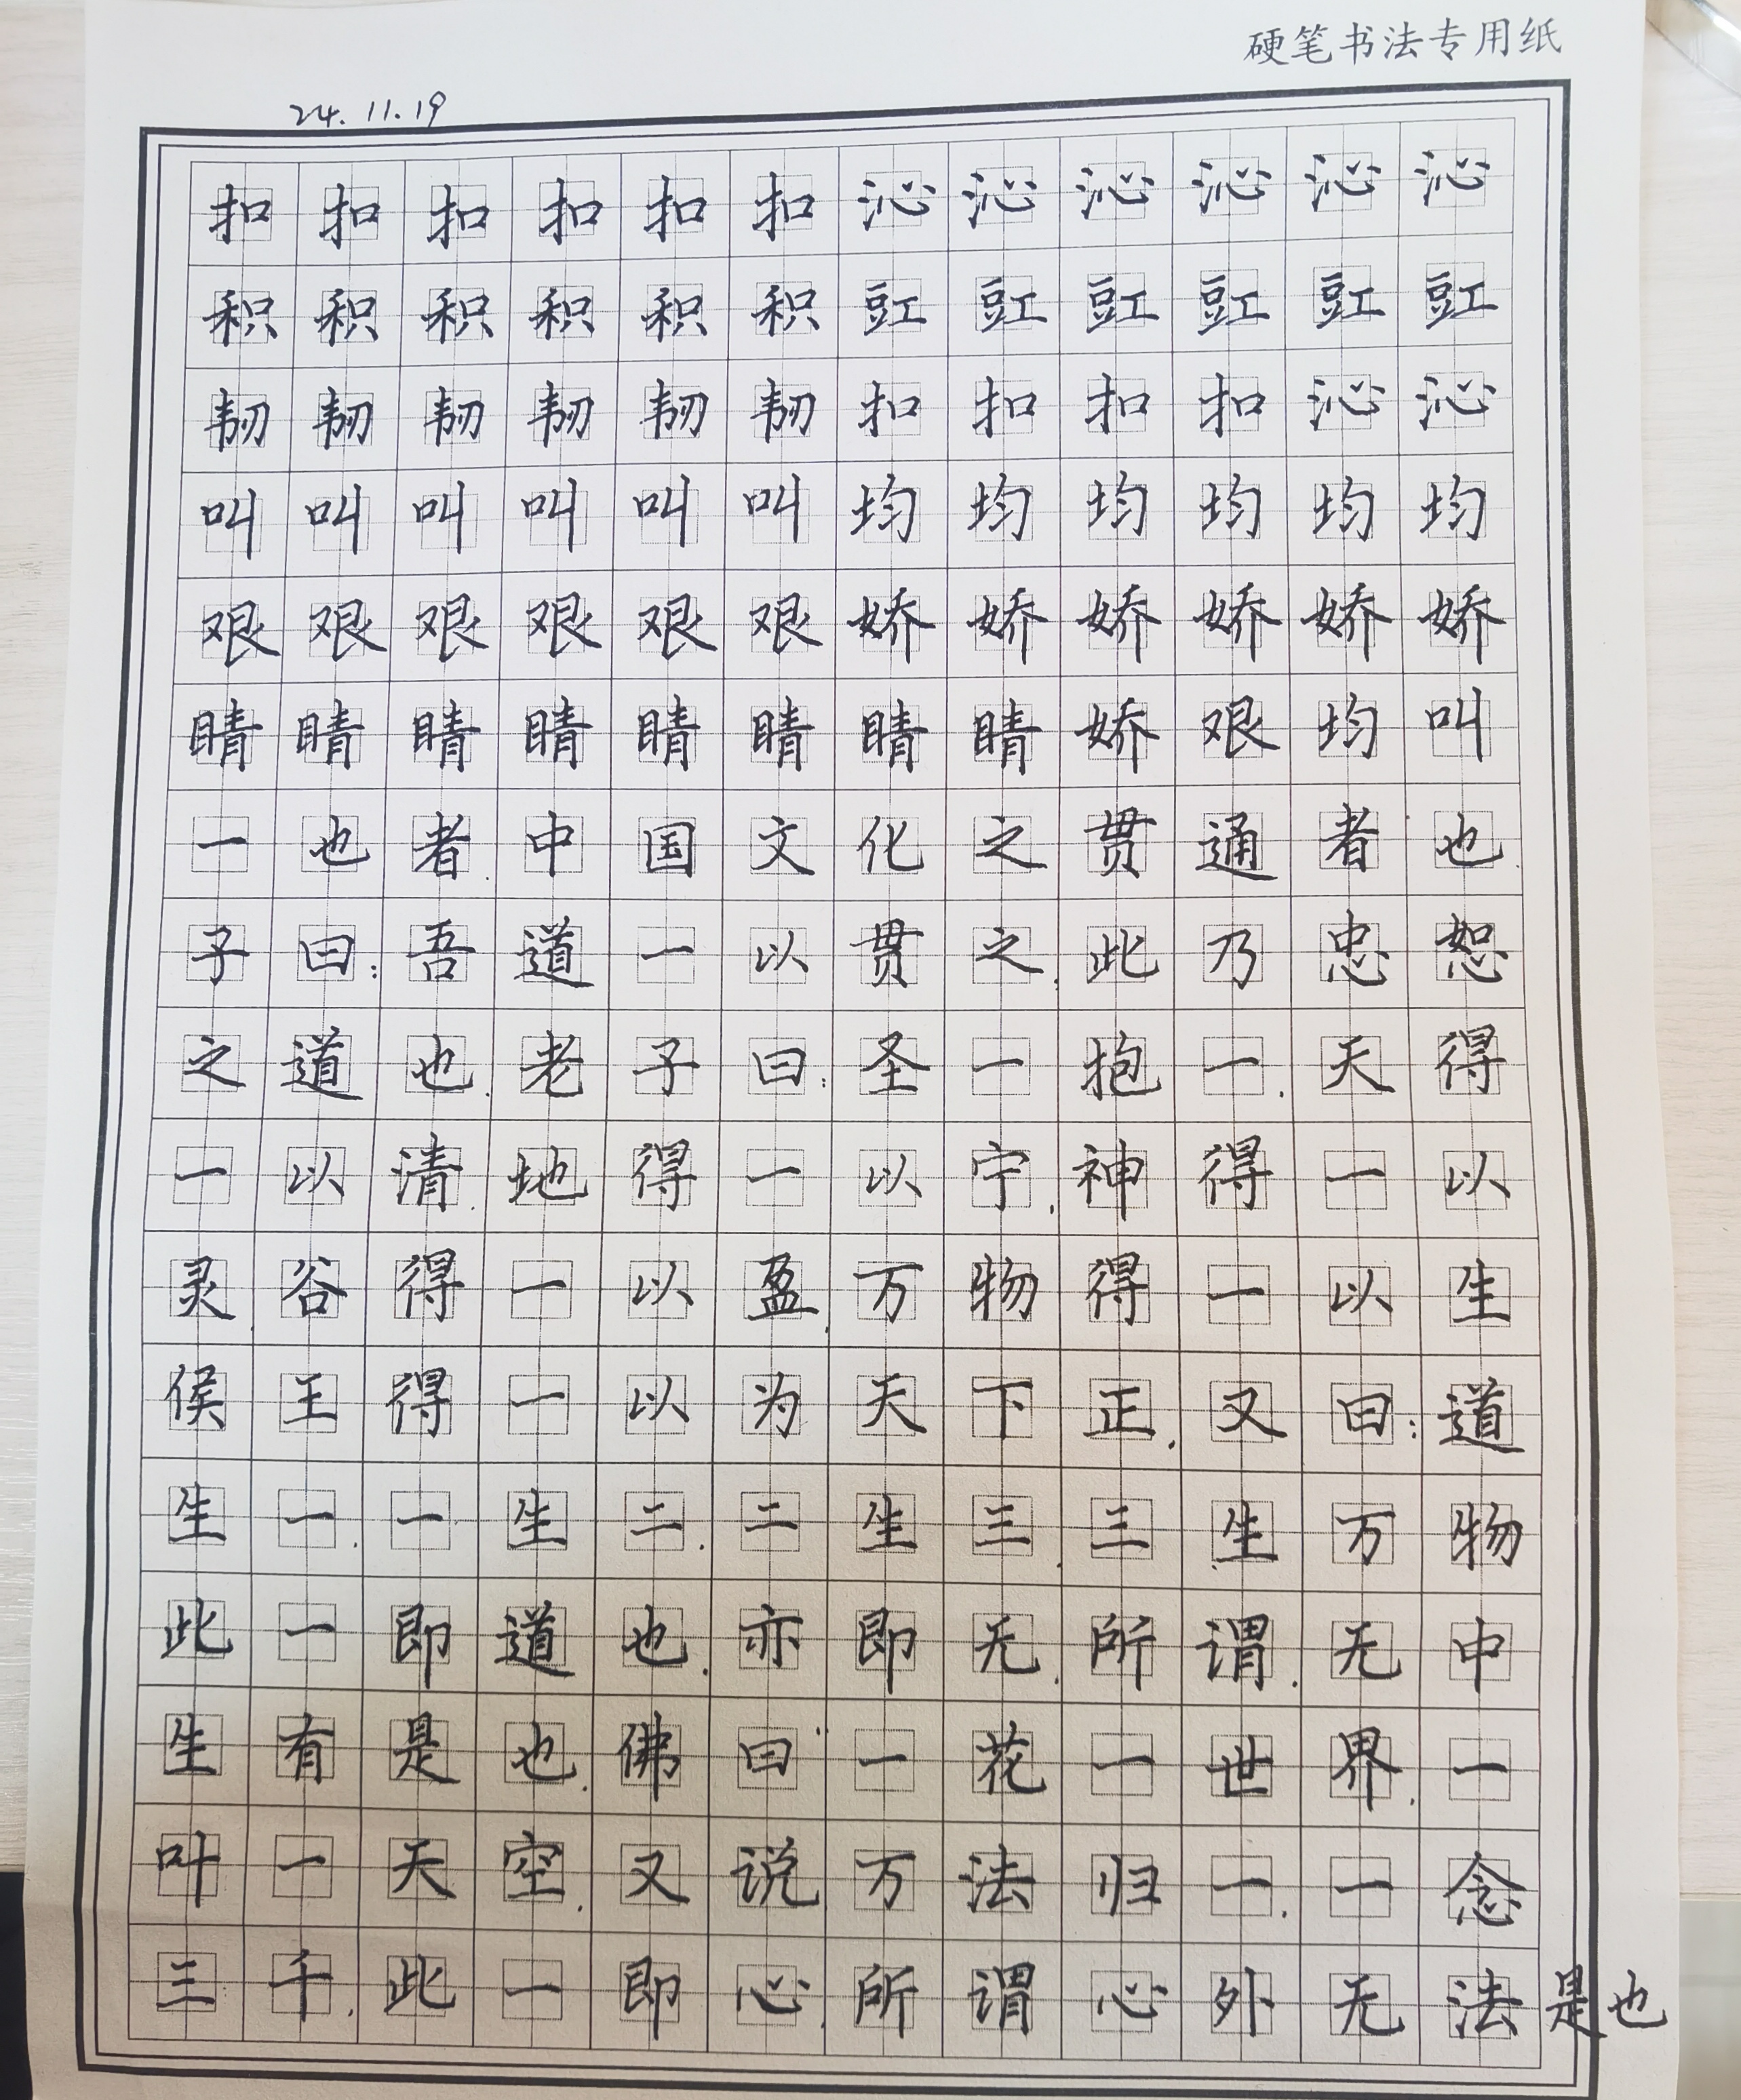 硬笔书法专用纸
24.11.19
扣扣扣扣扣扣沁沁沁沁沁沁
积积积积积积豇豇豇豇豇豇
韧韧韧韧韧韧扣扣扣扣沁沁
叫叫叫叫叫叫均均均均均均
艰艰艰艰艰艰娇娇娇娇娇娇
睛睛睛睛睛睛睛睛娇艰均叫
一也者.中国文化之贯通者也.
子曰:吾道一以贯之.此乃忠恕
之道也.老子曰:圣一抱一.天得
一以清.地得一以宁.神得一以
灵.谷得一以盈.万物得一以生
侯王得一以为天下正.又曰:道
生一.一生二.二生三.三生万物
此一即道也.亦即无.所谓.无中
生有是也.佛曰:一花一世界.一
叶一天空.又说万法归一.一念
三千.此一即心.所谓心外无法是也